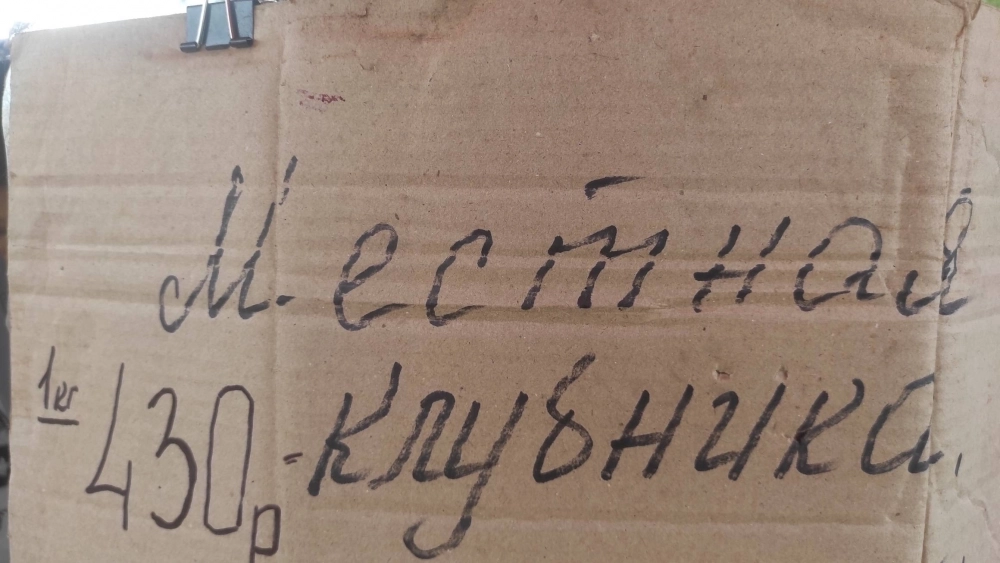 Местная
1кг
430р - клубника.